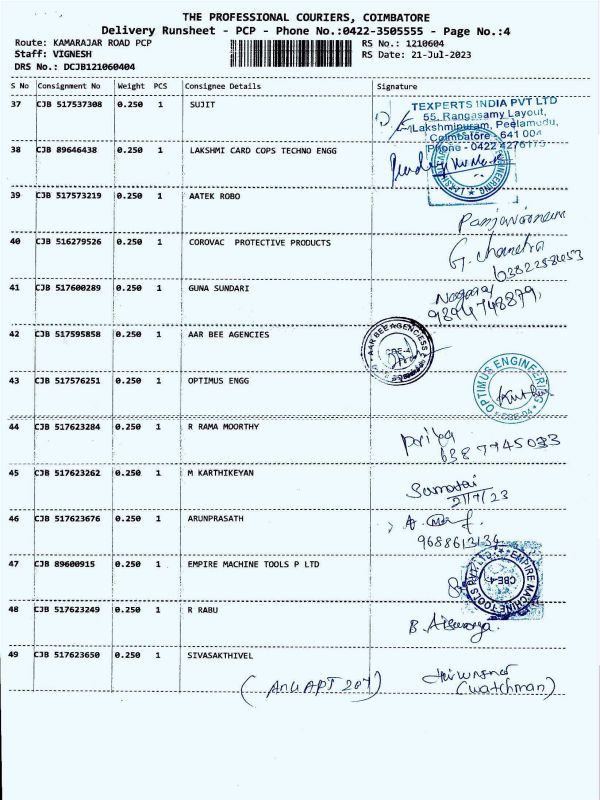 THE PROFESSIONAL COURIERS, COIMBATORE
Delivery Runsheet - PCP - Phone No.:0422-3505555 - Page No.:4
Route: KAMARAJAR ROAD PCP RS No.: 1210604
Staff: VIGNESH RS Date: 21-Jul-2023
DRS No.: DCJB121060404
S No Consignment No Weight PCS Consignee Details Signature
37 CJB 517537308 0.250 1 SUJIT
TEXPERTS INDIA PVT LTD
55, Rangasamy Layout,
Lakshmipuram, Peelamedu,
Coimbatore - 641 004
Phone - 0422 4276175
38 CJB 89646438 0.250 1 LAKSHMI CARD COPS TECHNO ENGG
ENGINEERING
39 CJB 517573219 0.250 1 AATEK ROBO
40 CJB 516279526 0.250 1 COROVAC PROTECTIVE PRODUCTS
G. Chandra
41 CJB 517600289 0.250 1 GUNA SUNDARI
Nagaraj
42 CJB 517595858 0.250 1 AAR BEE AGENCIES
AAR BEE AGENCIESS
CBE-4
43 CJB 517576251 0.250 1 OPTIMUS ENGG
OPTIMUS ENGINEERING
CBE-04
44 CJB 517623284 0.250 1 R RAMA MOORTHY
priya
45 CJB 517623262 0.250 1 M KARTHIKEYAN
21/7/23
46 CJB 517623676 0.250 1 ARUNPRASATH
9688613134
47 CJB 89600915 0.250 1 EMPIRE MACHINE TOOLS P LTD
EMPIRE MACHINE TOOLS PVT. LTD.
CBE-4
48 CJB 517623249 0.250 1 R RABU
B. Aiswarya.
49 CJB 517623650 0.250 1 SIVASAKTHIVEL
APT 207)
(watchman)